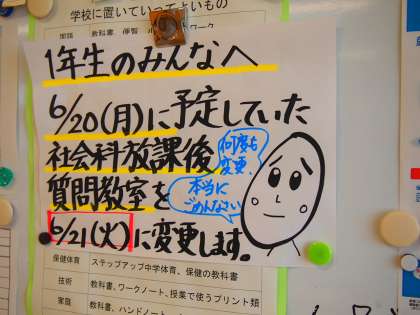 学校に置いていってよいもの
国語 教科書、便覧
1年生のみんなへ
6/20(月)に予定していた
社会科放課後
質問教室を
6/21(火)に変更します。
何度も
変更、
本当に
ごめんなさい
保健体育 ステップアップ中学体育、保健の教科書
技術 教科書、ワークノート、授業で使うプリント類
家庭 教科書、ハンドノート